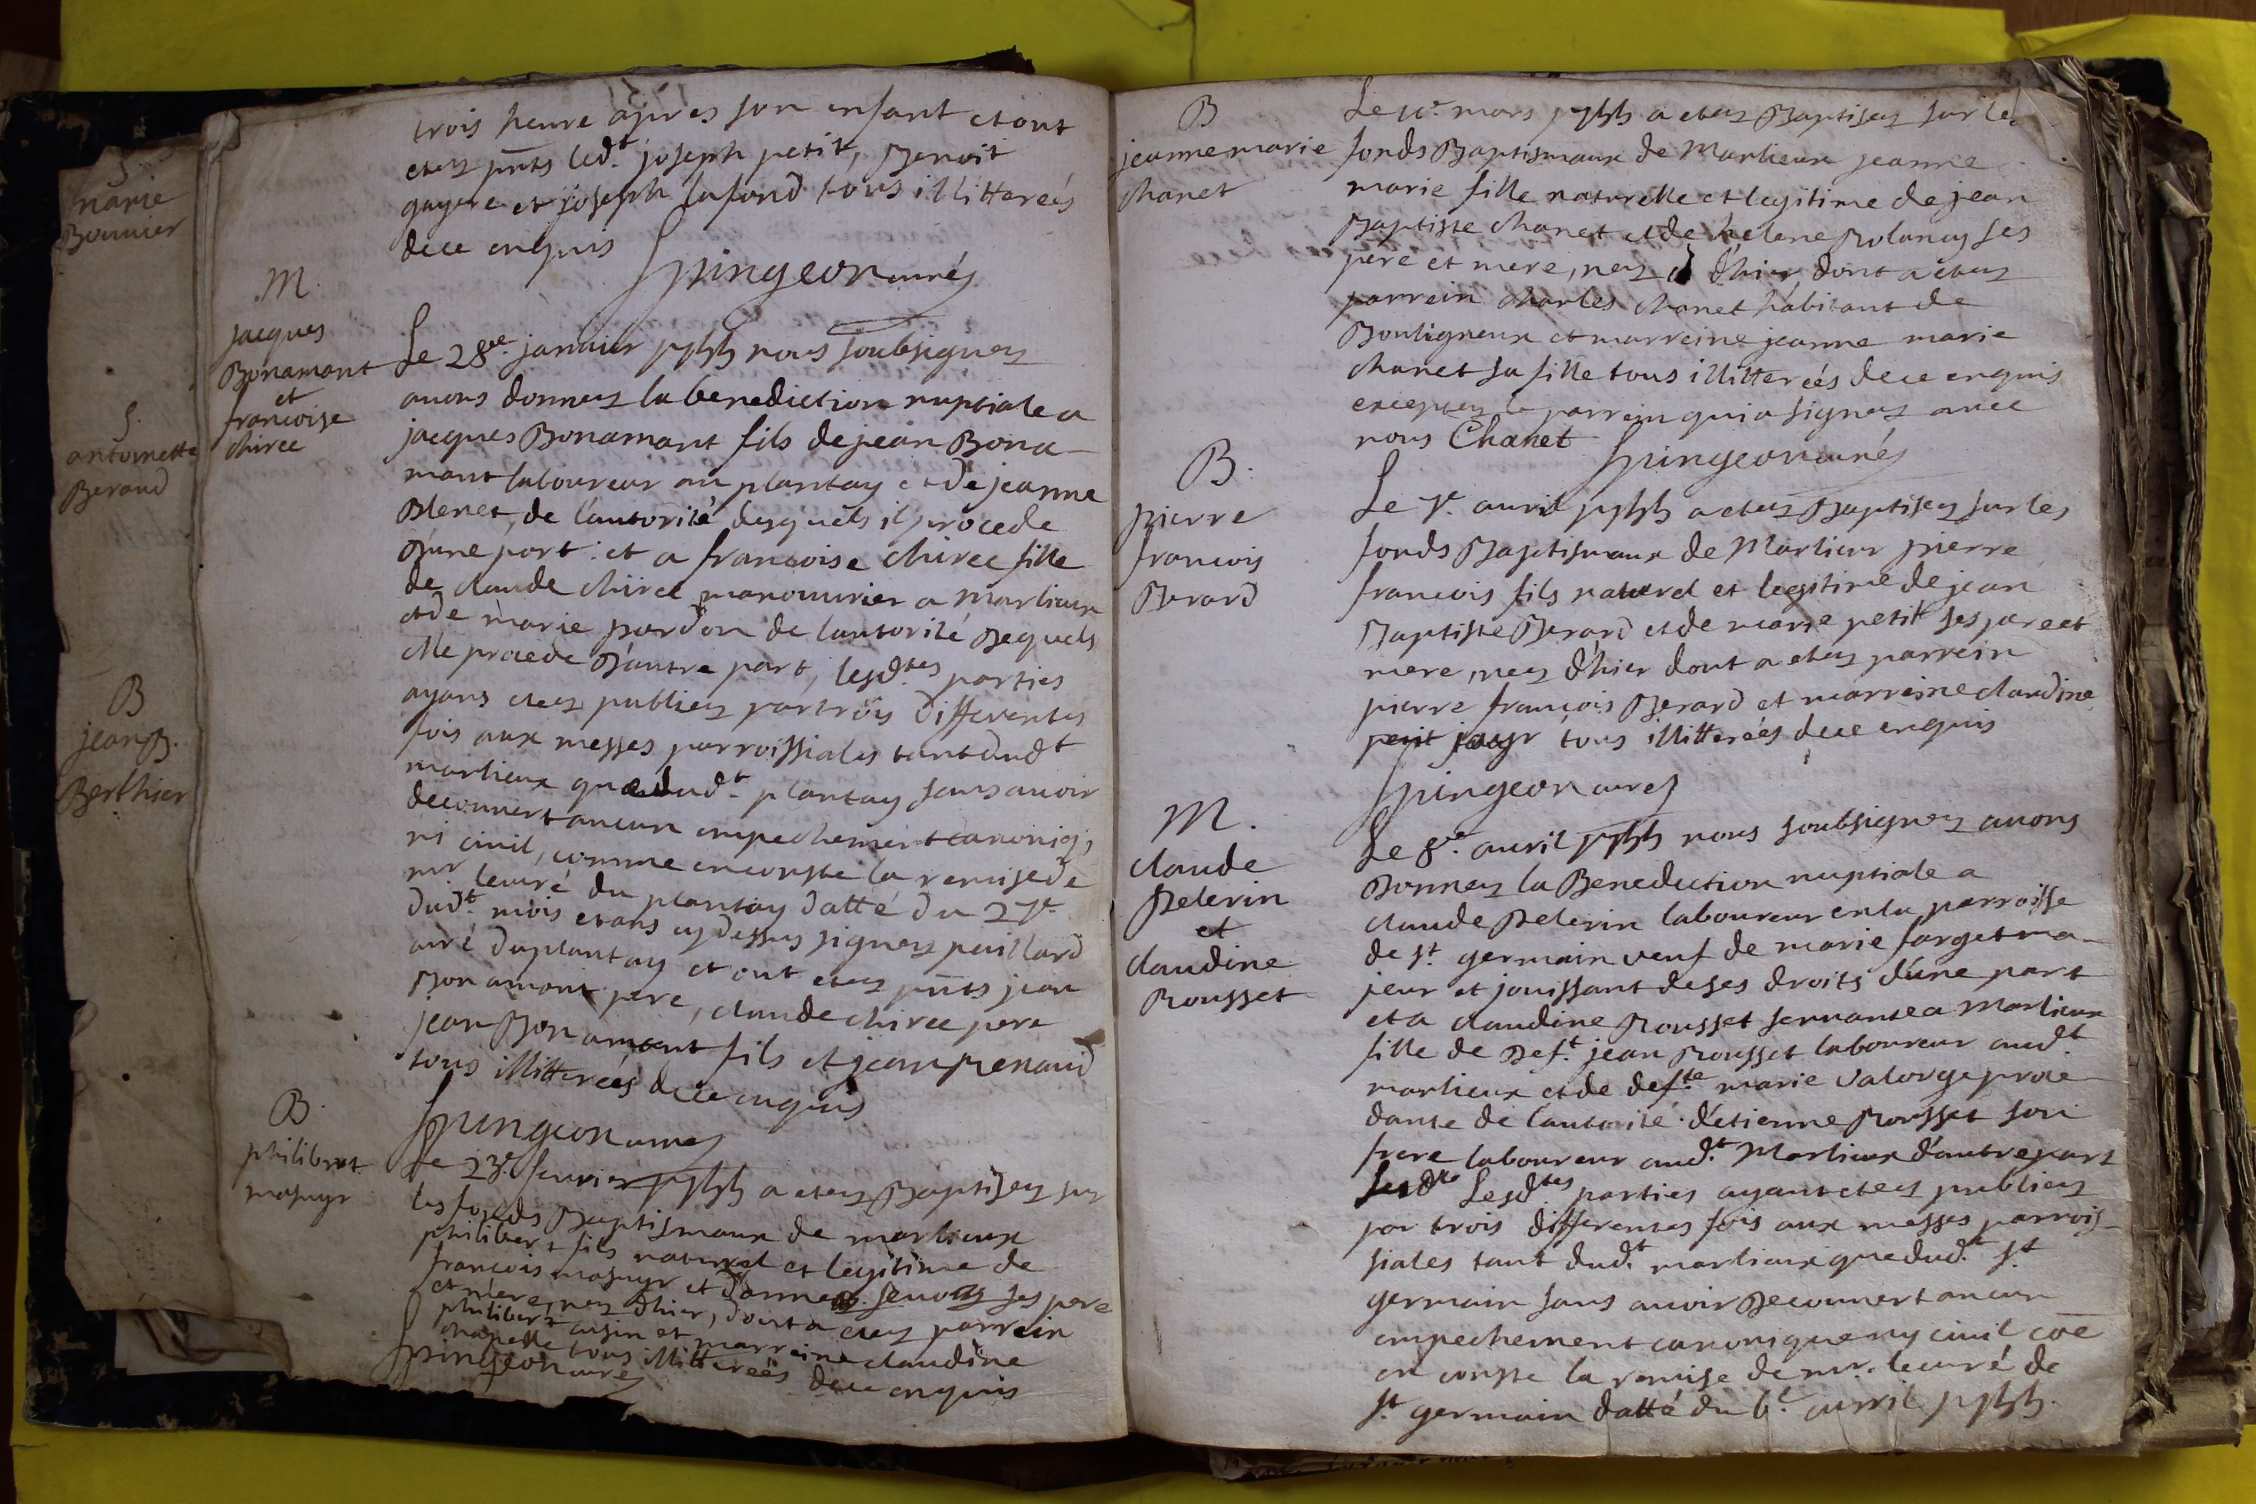 S.
marie
Bouvier
S.
antoinette
Beraud
B
jean B.
Berthier
trois heure apres son enfant et ont
etez pnts led.t joseph petit, Benoit
gayere et joseph lafond tous illitereés
dece enquis
Spingeon curéz
M.
jacques
Bonamant
et
francoise
chiree
Le 28.e janvier nous soubsignez
avons donnez la benediction nuptiale a
jacques Bonamant fils de jean Bona-
mant laboureur au plantay et de jeanne
Blenet, de l'autorité desquels il procede
d'une part et a francoise chiree fille
de claude chiree manouvrier a marlieux
et de marie pardon de lautorité dequels
elle procede d'autre part, lesd.tes parties
ayans etez publiez par trois differentes
fois aux messes parroissiales tant dud.t
marlieux que dud.t plantay sans avoir
decouvert aucun empechement canoniq;
ni civil, comme en conste la remise de
mr le curé du plantay datté du 27.e
dud.t mois et ans cy dessus signez paillard
curé du plantay et ont etez pnts jean
Bonamant pere, claude chiree pere
jean Bonamant fils et jean renaud
tous illitereés dece enquis
Spingeon curez
B.
philibert
masuyr
Le 23.e fevrier a etez Baptisez sur
les fonds Baptismaux de marlieux
philibert fils naturel et legitime de
francois masuyr et ses pere
et mere, nez d'hier, dont a etez parrein
philibert cusin et marreine claudine
chapelle tous illitereés dece enquis
Spingeon curéz
B
jeanne marie
chanet
Le mars a etez Baptisez sur les
fonds Baptismaux de Marlieux jeanne
marie fille naturelle et legitime de jean
Baptiste chanet et de helene Rolancy ses
pere et mere, nez d'hier dont a etez
parrein charles chanet habitant de
Bouligneux et marreine jeanne marie
chanet sa fille tous illitereés dece enquis
exceptez le parrein qui a signez avec
nous Chanet Spingeon curéz
B.
pierre
francois
Berard
Le avril a etez Baptisez sur les
fonds Baptismaux de Marlieux pierre
francois fils naturel et legitime de jean
Baptiste Berard et de marie petit ses pere et
mere, nez d'hier dont a etez parrein
pierre francois Berard et marreine claudine
tous illitereés dece enquis
Spingeon curez
M.
claude
Pelerin
et
claudine
Rousset
Le 8.e avril nous soubsignez avons
Donnez la Benediction nuptiale a
claude Pelerin laboureur en la parroisse
de st. germain veuf de marie forget ma-
jeur et jouissant de ses droits d'une part
et a claudine Rousset servante a Marlieux
fille de def.t jean Rousset laboureur aud.t
marlieux et de def.te marie valorge proce-
dante de l'autorité d'etienne Rousset son
frere laboureur aud.t Marlieux d'autre part
Lesd.tes parties ayant etez publiez
par trois differentes fois aux messes parrois-
siales tant dud.t marlieux que dud.t st
germain sans avoir Decouvert aucun
empechement canonique ny civil coe
en conste la remise de mr. le curé de
st germain datté du 6.e avril